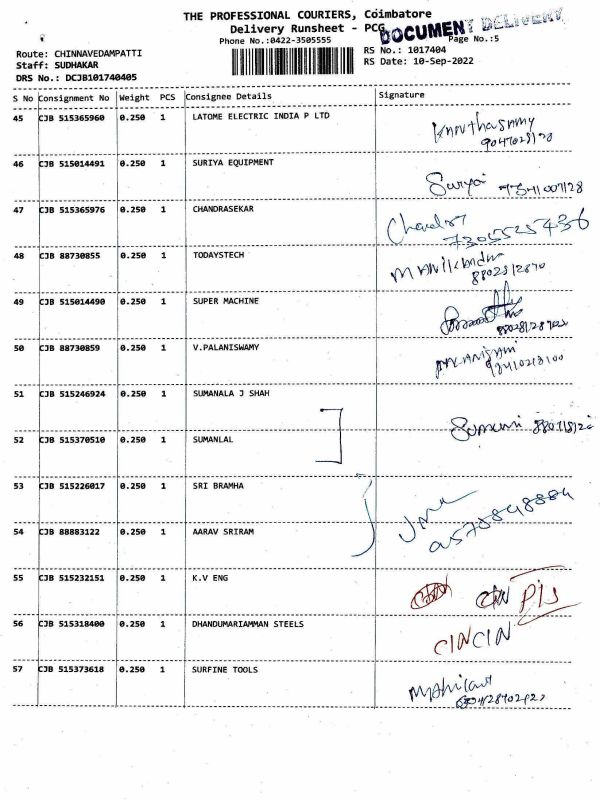 THE PROFESSIONAL COURIERS, Coimbatore
Delivery Runsheet - PCG
DOCUMENT DELIVERY
Phone No.:0422-3505555
Page No.:5
Route: CHINNAVEDAMPATTI
RS No.: 1017404
Staff: SUDHAKAR
RS Date: 10-Sep-2022
DRS No.: DCJB101740405
S No Consignment No Weight PCS Consignee Details Signature
45 CJB 515365960 0.250 1 LATOME ELECTRIC INDIA P LTD
46 CJB 515014491 0.250 1 SURIYA EQUIPMENT
Suriya
47 CJB 515365976 0.250 1 CHANDRASEKAR
7305525436
48 CJB 88730855 0.250 1 TODAYSTECH
49 CJB 515014490 0.250 1 SUPER MACHINE
50 CJB 88730859 0.250 1 V.PALANISWAMY
51 CJB 515246924 0.250 1 SUMANALA J SHAH
52 CJB 515370510 0.250 1 SUMANLAL
53 CJB 515226017 0.250 1 SRI BRAMHA
54 CJB 88883122 0.250 1 AARAV SRIRAM
55 CJB 515232151 0.250 1 K.V ENG
CIN
56 CJB 515318400 0.250 1 DHANDUMARIAMMAN STEELS
CIN CIN
57 CJB 515373618 0.250 1 SURFINE TOOLS